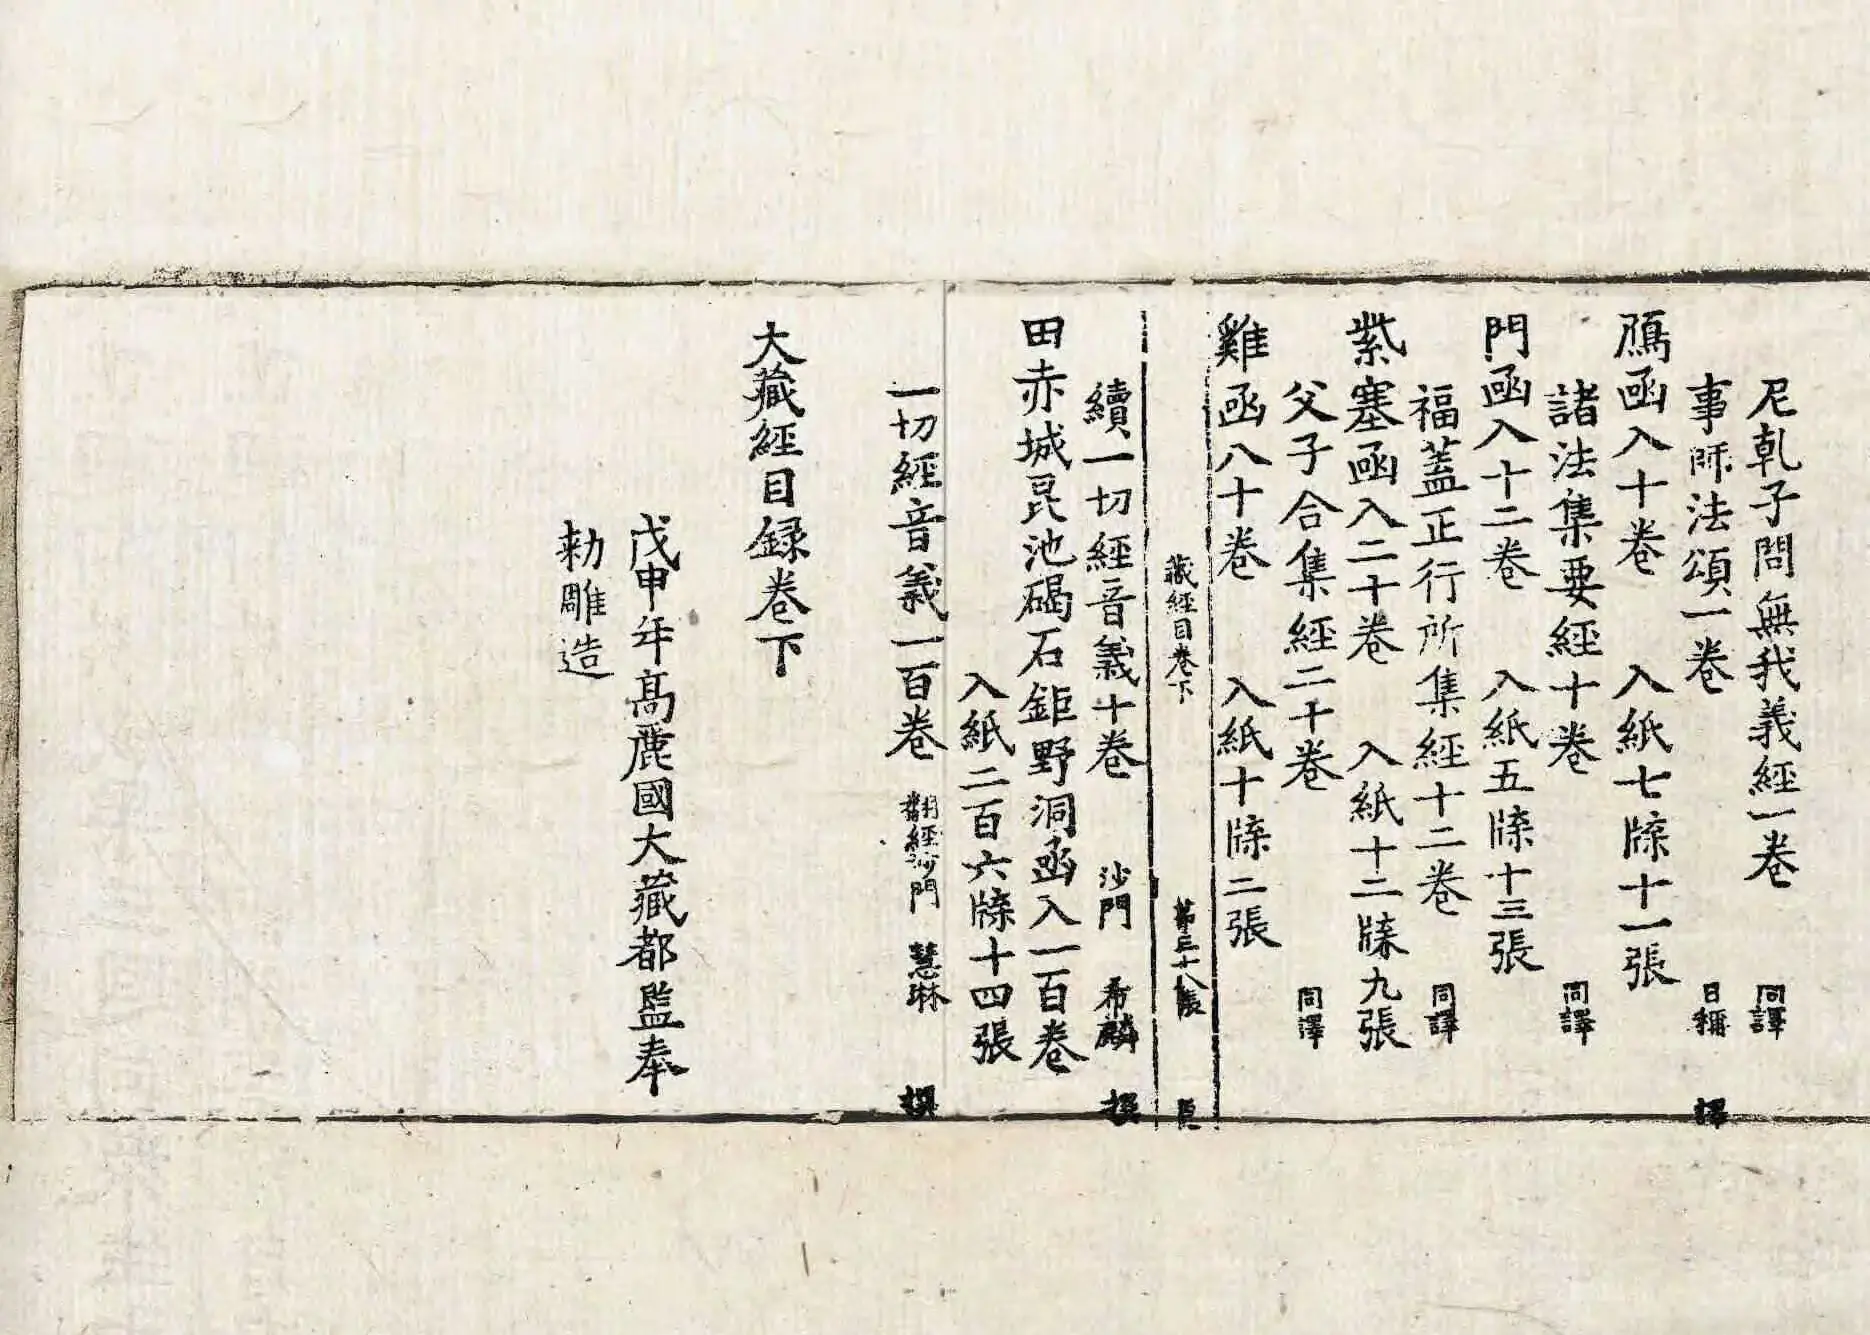 尼乹子問無我義經一卷 同譯
事師法頌一卷 日稱 譯
鴈函入十卷 入紙七牒十一張
諸法集要經十卷 同譯
門函入十二卷 入紙五牒十三張
福蓋正行所集經十二卷 同譯
紫塞函入二十卷 入紙十二牒九張
父子合集經二十卷 同譯
雞函入十卷 入紙十牒二張
藏經目卷下 第三十八張
續一切經音義十卷 沙門 希麟 撰
田赤城昆池碣石鉅野洞函入一百卷
入紙二百六牒十四張
一切經音義一百卷 翻經沙門 慧琳 撰
大藏經目録卷下
戊申年髙麗國大藏都監奉
勑雕造